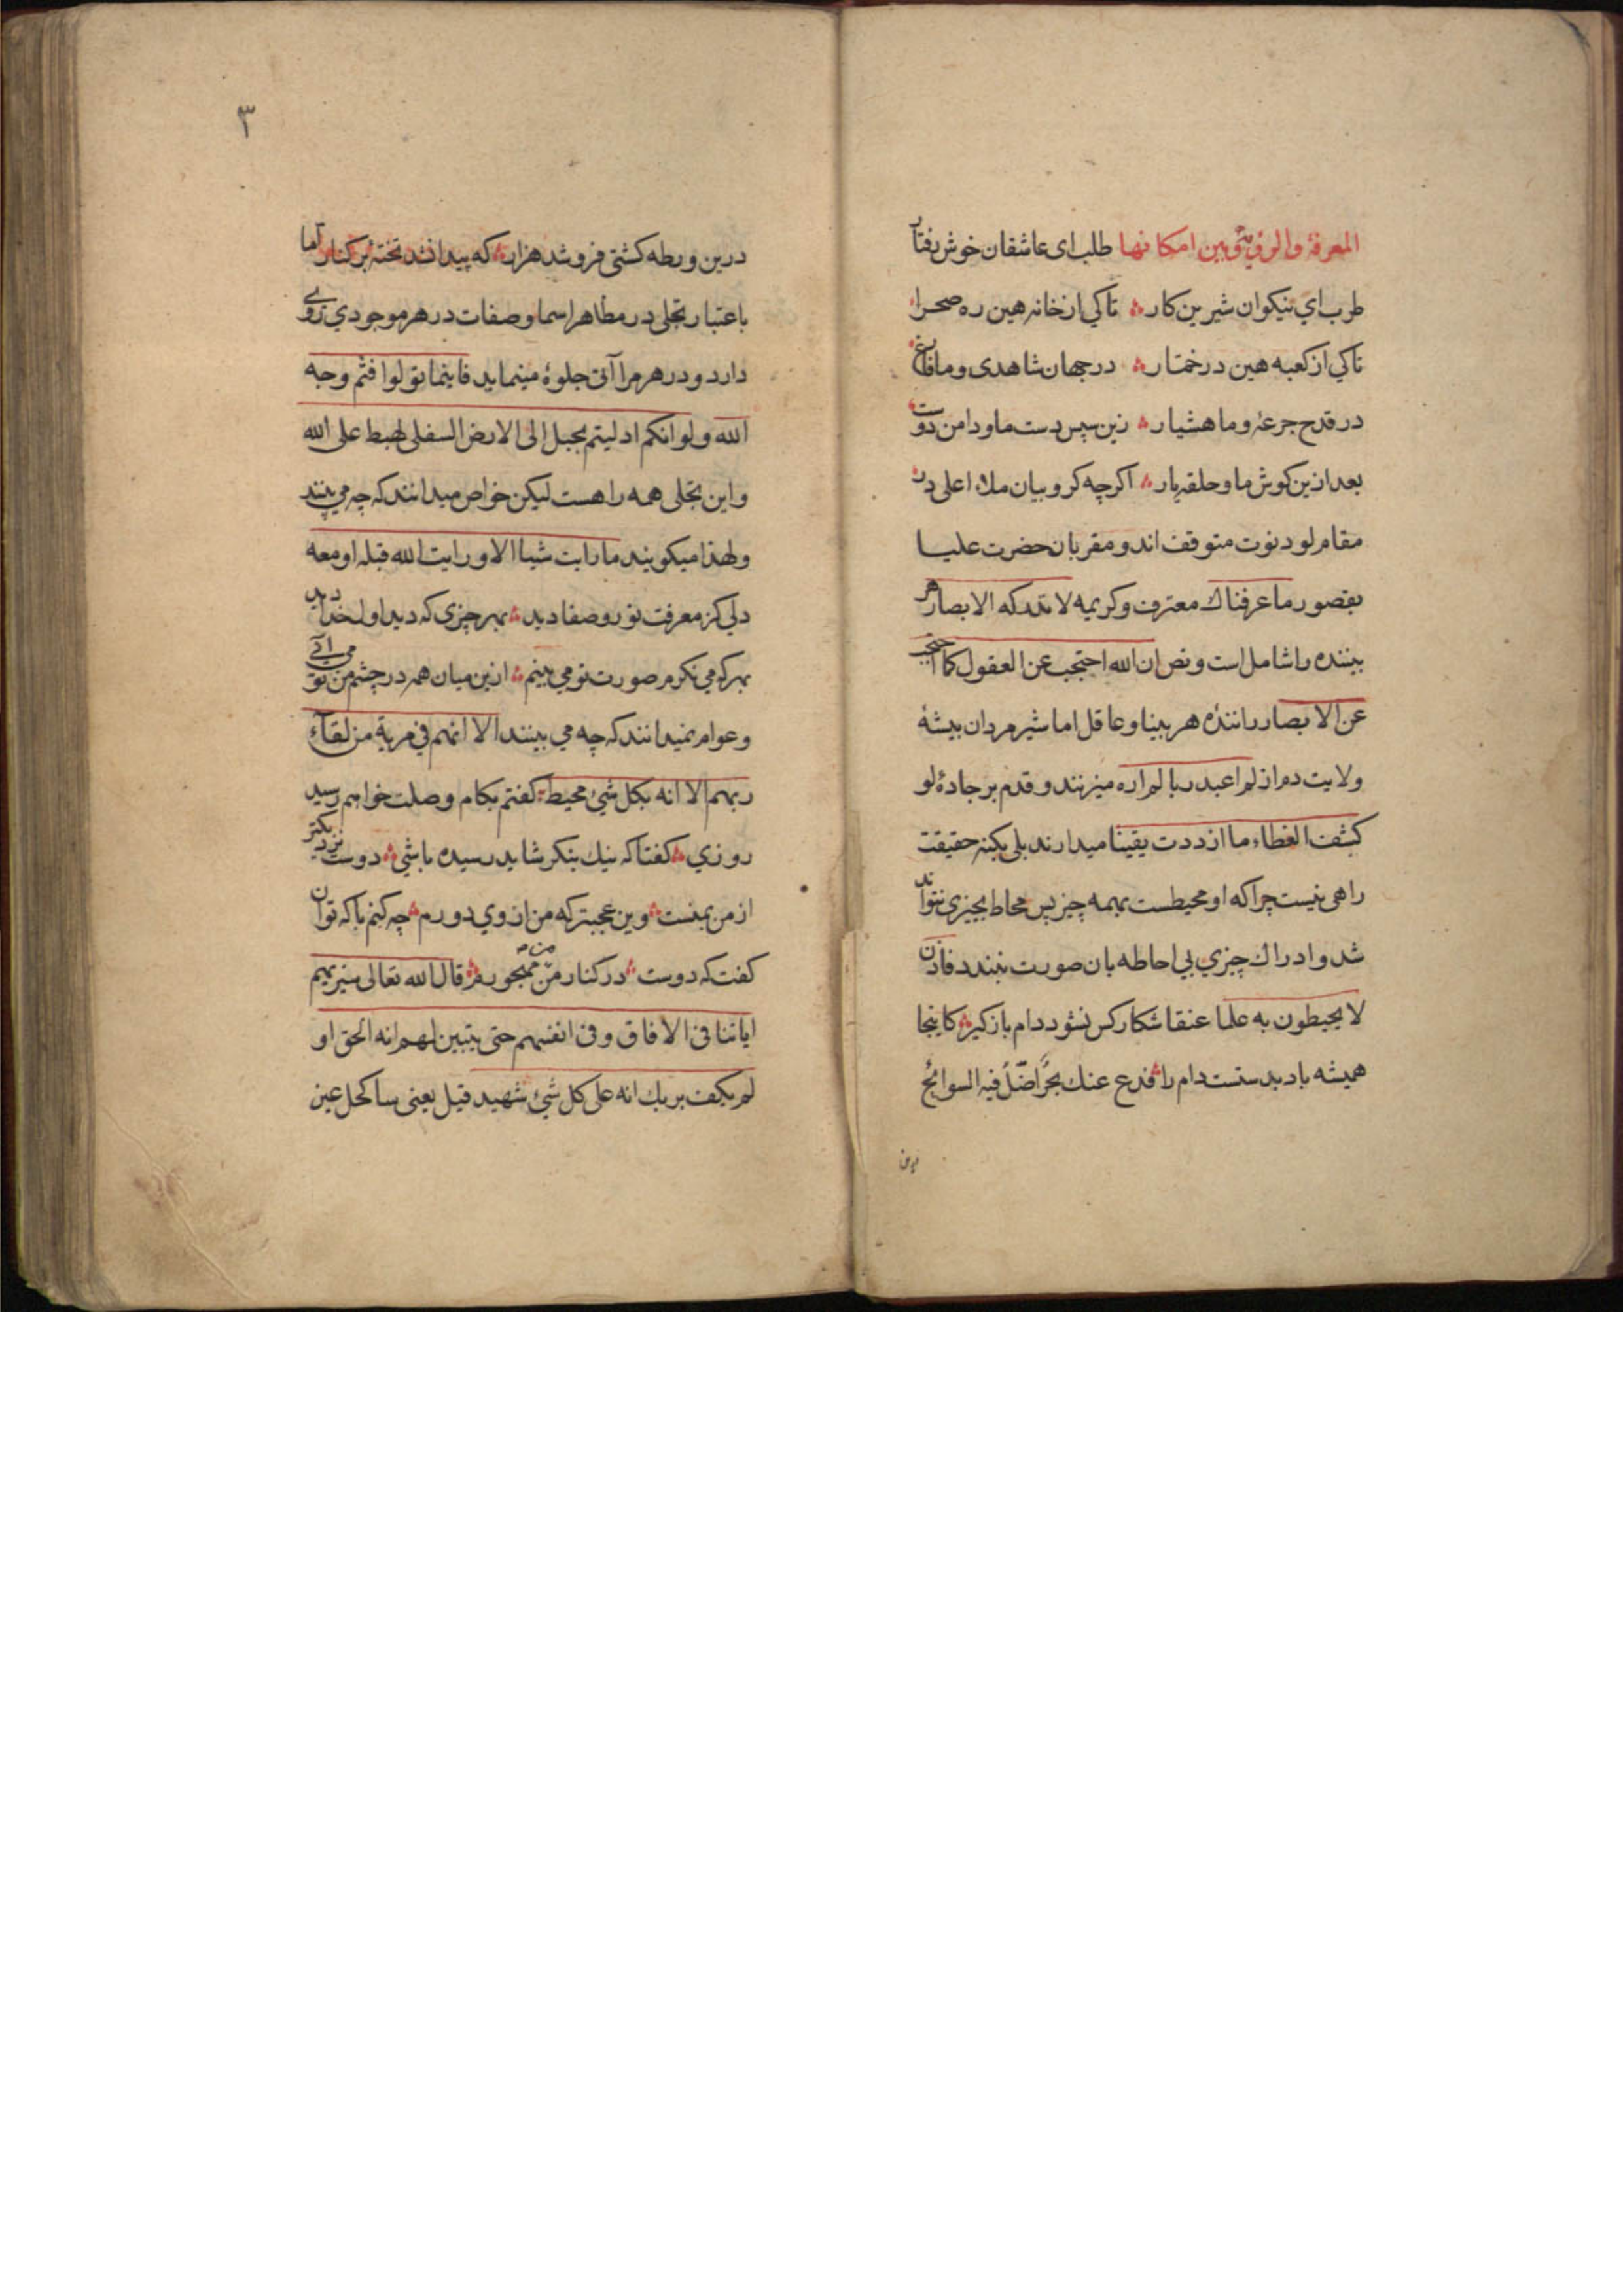 المعرفة والرؤية وبين امكانها طلب ای عاشقان خوش رفتار
طرب اي نيكوان شيرين كار تاكي از خانه هين ره صحرا
تاكي از كعبه هين در خمار در جهان شاهدی و ما فارغ
در قدح جرعۀ و ما هشيار زين سپس دست ما و دامن دوست
بعد ازين كوش ما و حلقه يار اكرچه كروبيان ملاء اعلی در
مقام لو دنوت متوقف اند و مقربان حضرت عليا
بقصور ما عرفناك معترف و كريمه لا تدركه الابصار هر
بيننده را شامل است و نص ان الله احتجب عن العقول كما احتجب
عن الابصار رانندۀ هر بينا و عاقل اما شير مردان بيشۀ
ولايت دم از لم اعبد ربا لم اره ميزنند و قدم بر جادۀ لو
كشف الغطاء ما ازددت يقينا ميدارند بلی بكنه حقيقت
راهی نيست چراكه او محيطست بهمه چيز پس محاط بچيزی نتواند
شد و ادراك چيزي بی احاطه بان صورت نبندد فاذن
لا يحيطون به علما عنقا شكار كس نشود دام باز كير كاينجا
هميشه باد بدستست دام را فدع عنك بحرًا ضلّ فيه السوابح
درين
٣
درين ورطه كشتی فرو شد هزار كه پيدا نشد تختۀ بر كنار اما
باعتبار تجلی در مظاهر اسما و صفات در هر موجودي روي
دارد و در هر مرآتی جلوۀ مينمايد فاينما تولوا فثم وجه
الله و لو انكم ادليتم بحبل إلی الارض السفلی لهبط علی الله
و اين تجلی همه را هست ليكن خواص ميدانند كه چه مي بينند
و لهذا ميكويند ما رايت شيا الا و رايت الله قبله او معه
دلی كز معرفت نور و صفا ديد بهر چيزی كه ديد اول خدا ديد
بهر كه مي نكرم صورت تو می بينم ازين ميان همه در چشم من تو مي آئی
و عوام نميدانند كه چه مي بينند الا انهم في مرية من لقاء
ربهم الا انه بكل شئ محيط كفتم بكام وصلت خواهم رسيد
روزي كفتا كه نيك بنكر شايد رسيده باشي دوست نزديكتر
از من بمنست وين عجبتر كه من از وي دورم چه كنم با كه توان
كفت كه دوست در كنار من و من مهجورم قال الله تعالی سنريهم
اياتنا فی الافاق و فی انفسهم حتی يتبين لهم انه الحق او
لم يكف بربك انه علی كل شئ شهيد قيل يعنی ساكحل عين